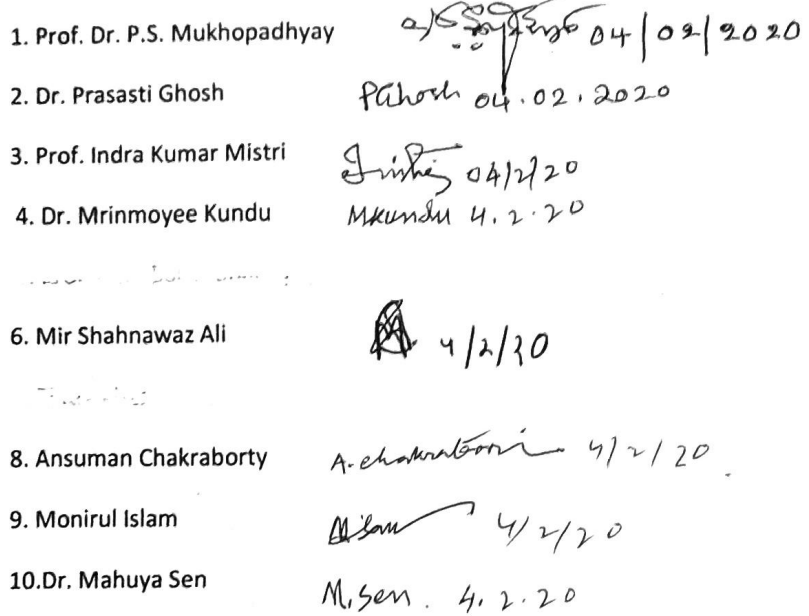 1. Prof. Dr. P.S. Mukhopadhyay 04/02/2020
2. Dr. Prasasti Ghosh PGhosh 04.02.2020
3. Prof. Indra Kumar Mistri 04/2/20
4. Dr. Mrinmoyee Kundu MKundu 4.2.20
6. Mir Shahnawaz Ali 4/2/20
8. Ansuman Chakraborty A. Chakraborty 4/2/20
9. Monirul Islam 4/2/20
10.Dr. Mahuya Sen M.Sen. 4.2.20